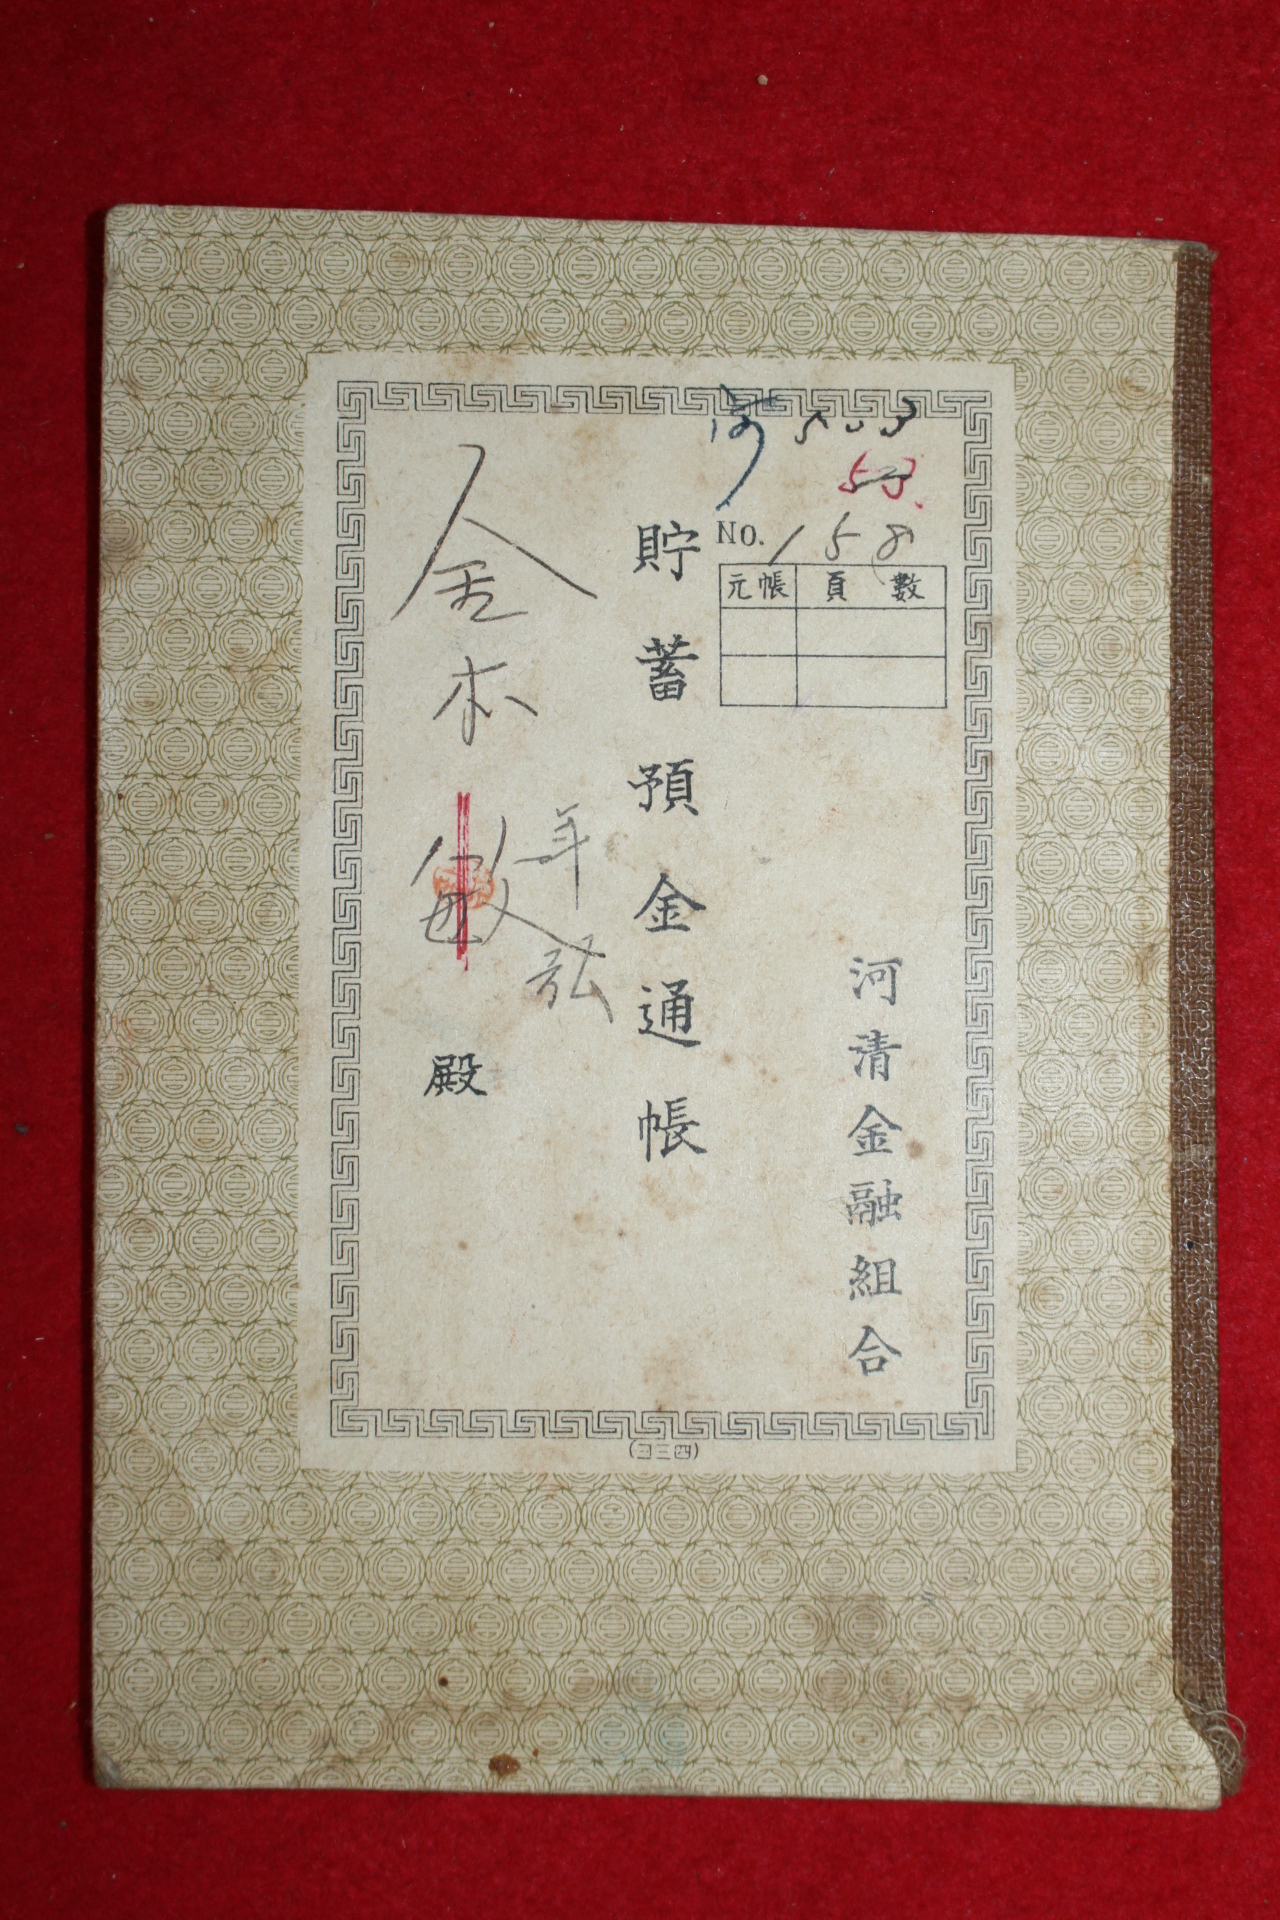 河 503
53
No. 158
元帳 頁數
河清金融組合
貯蓄預金通帳
年弘
金本敏殿
(ヨ三四)